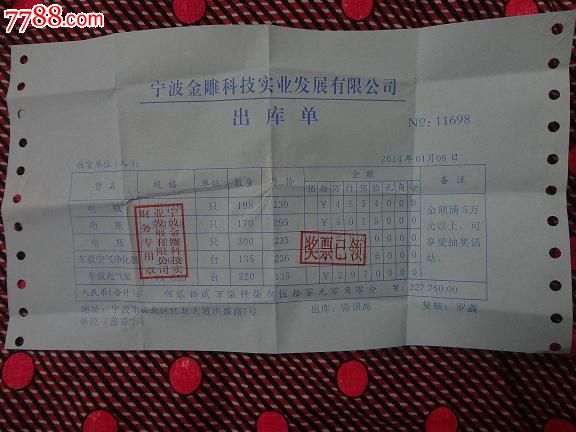 7788.com
宁波金雕科技实业发展有限公司
出库单
№: 11698
收货单位(人):
2014年01月08日
货名 规格 单位 数量 单价 金额 备注
佰拾万仟佰拾元角分
电瓶 只 198 230 ¥4554000
电瓶 只 170 295 ¥5015000
电瓶 只 300 235
车载空气净化器 台 135 236
车载充气泵 台 220 135 ¥2970000
金额满5万元以上,可享受抽奖活动。
人民币(合计): 佰贰拾贰万柒仟柒佰伍拾零元零角零分 ¥: 227,750.00
地址:宁波市江北区江北大道洪盛路7号 出库: 陈国海 复核: 罗鑫
单位(盖章):
宁波金雕科技实业发展有限公司
财务专用章
奖票已领